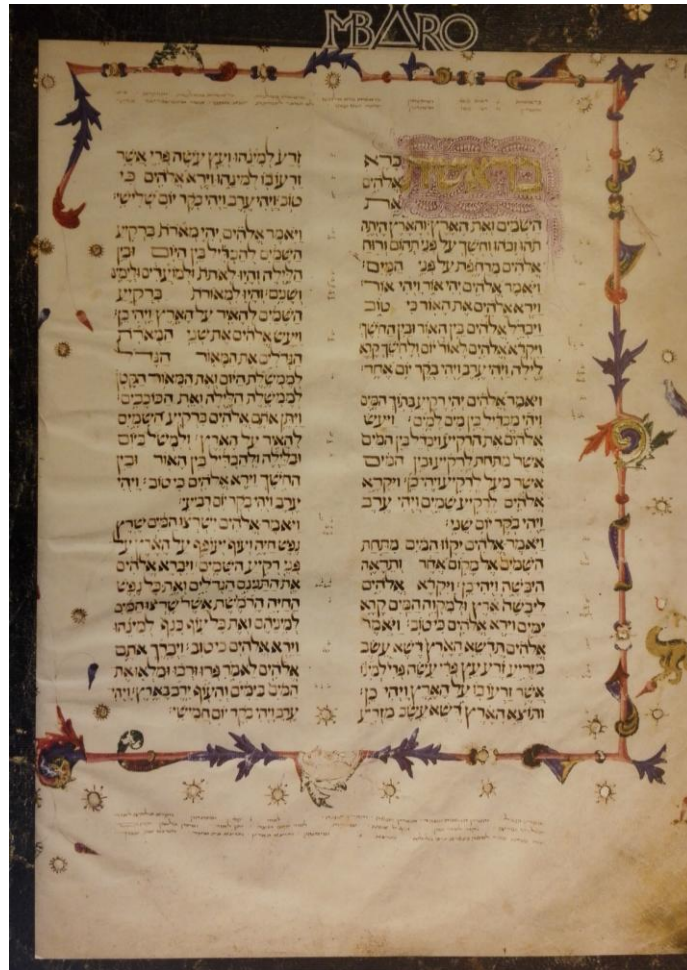 MBARO
בראשית ברא
אלהים
את
השמים ואת הארץ׃ והארץ היתה
תהו ובהו וחשך על פני תהום ורוח
אלהים מרחפת על פני המים׃
ויאמר אלהים יהי אור ויהי אור׃
וירא אלהים את האור כי טוב
ויבדל אלהים בין האור ובין החשך׃
ויקרא אלהים לאור יום ולחשך קרא
לילה ויהי ערב ויהי בקר יום אחד׃
ויאמר אלהים יהי רקיע בתוך המים
ויהי מבדיל בין מים למים׃ ויעש
אלהים את הרקיע ויבדל בין המים
אשר מתחת לרקיע ובין המים
אשר מעל לרקיע ויהי כן׃ ויקרא
אלהים לרקיע שמים ויהי ערב
ויהי בקר יום שני׃
ויאמר אלהים יקוו המים מתחת
השמים אל מקום אחד ותראה
היבשה ויהי כן׃ ויקרא אלהים
ליבשה ארץ ולמקוה המים קרא
ימים וירא אלהים כי טוב׃ ויאמר
אלהים תדשא הארץ דשא עשב
מזריע זרע עץ פרי עשה פרי למינו
אשר זרעו בו על הארץ ויהי כן׃
ותוצא הארץ דשא עשב מזריע
זרע למינהו ועץ עשה פרי אשר
זרעו בו למינהו וירא אלהים כי
טוב׃ ויהי ערב ויהי בקר יום שלישי׃
ויאמר אלהים יהי מארת ברקיע
השמים להבדיל בין היום ובין
הלילה והיו לאתת ולמועדים ולימים
ושנים׃ והיו למאורת ברקיע
השמים להאיר על הארץ ויהי כן׃
ויעש אלהים את שני המארת
הגדלים את המאור הגדל
לממשלת היום ואת המאור הקטן
לממשלת הלילה ואת הכוכבים׃
ויתן אתם אלהים ברקיע השמים
להאיר על הארץ׃ ולמשל ביום
ובלילה ולהבדיל בין האור ובין
החשך וירא אלהים כי טוב׃ ויהי
ערב ויהי בקר יום רביעי׃
ויאמר אלהים ישרצו המים שרץ
נפש חיה ועוף יעופף על הארץ על
פני רקיע השמים׃ ויברא אלהים
את התנינם הגדלים ואת כל נפש
החיה הרמשת אשר שרצו המים
למינהם ואת כל עוף כנף למינהו
וירא אלהים כי טוב׃ ויברך אתם
אלהים לאמר פרו ורבו ומלאו את
המים בימים והעוף ירב בארץ׃ ויהי
ערב ויהי בקר יום חמישי׃